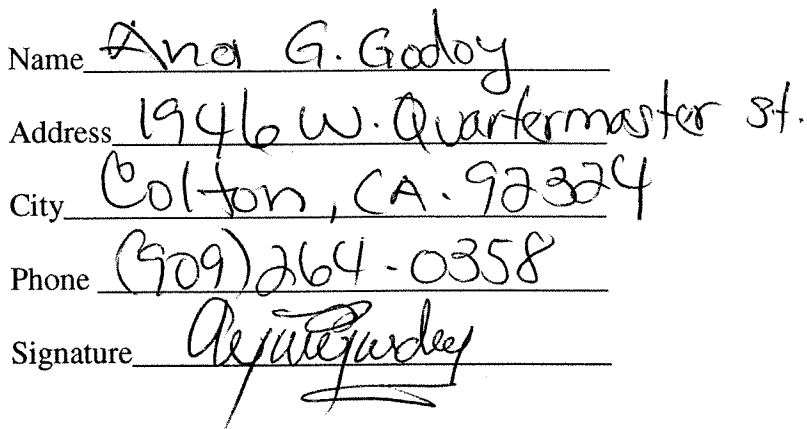 Name Ana G. Godoy
Address 1946 W. Quartermaster st.
City Colton, CA. 92324
Phone (909) 264-0358
Signature